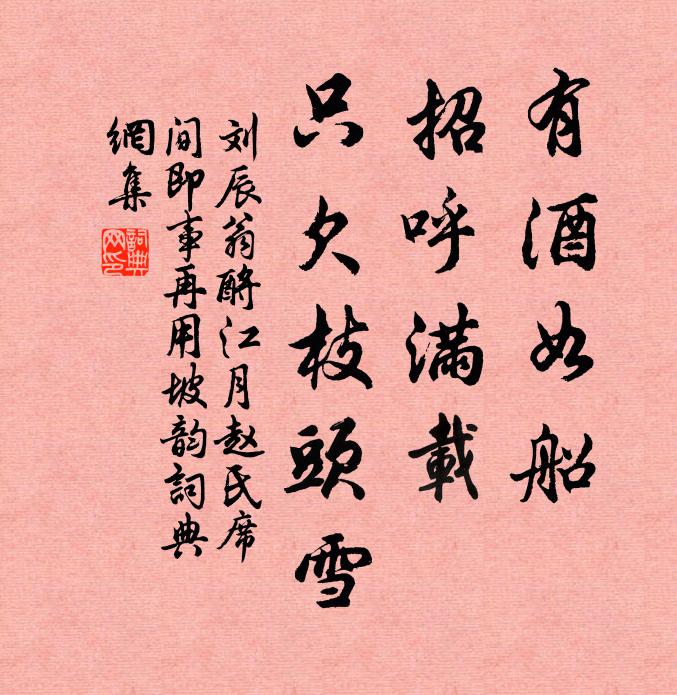 有酒如船
招呼满載
只欠枝頭雪
刘辰翁酹江月赵氏席
间即事再用坡韵詞典
網集
詞典網印